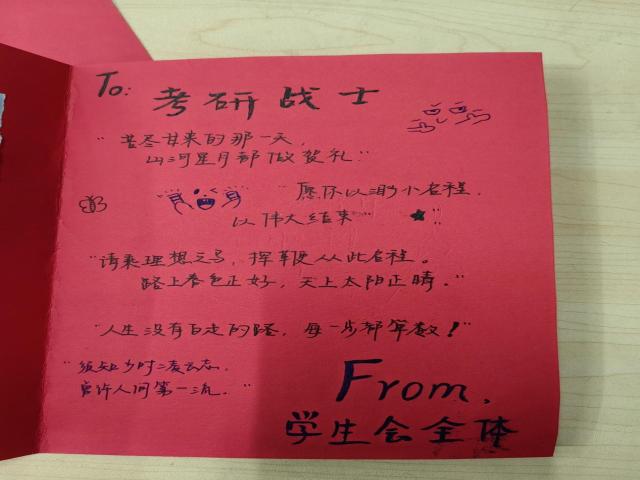 To: 考研战士
"苦尽甘来的那一天,
山河星月都做贺礼."
愿你以渺小启程,
以伟大结束"
"请乘理想之马,挥鞭从此启程。
路上春色正好,天上太阳正晴."
"人生没有白走的路,每一步都算数!"
"须知少时凌云志,
曾许人间第一流."
From,
学生会全体